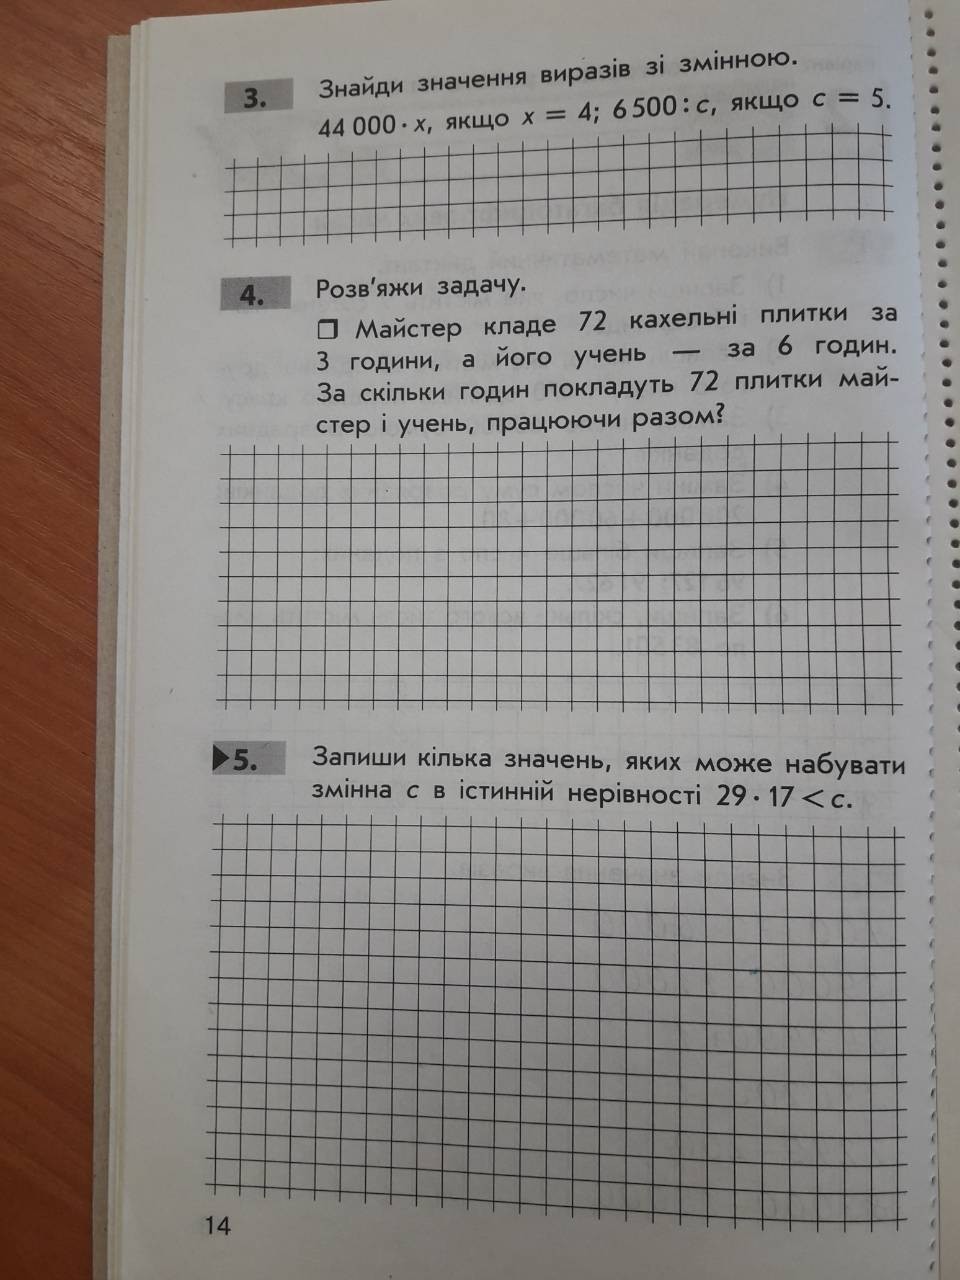 3. Знайди значення виразів зі змінною.
44 000 · x, якщо x = 4; 6 500 : c, якщо c = 5.
4. Розв'яжи задачу.
❒ Майстер кладе 72 кахельні плитки за
3 години, а його учень — за 6 годин.
За скільки годин покладуть 72 плитки май-
стер і учень, працюючи разом?
▶5. Запиши кілька значень, яких може набувати
змінна c в істинній нерівності 29 · 17 < c.
14